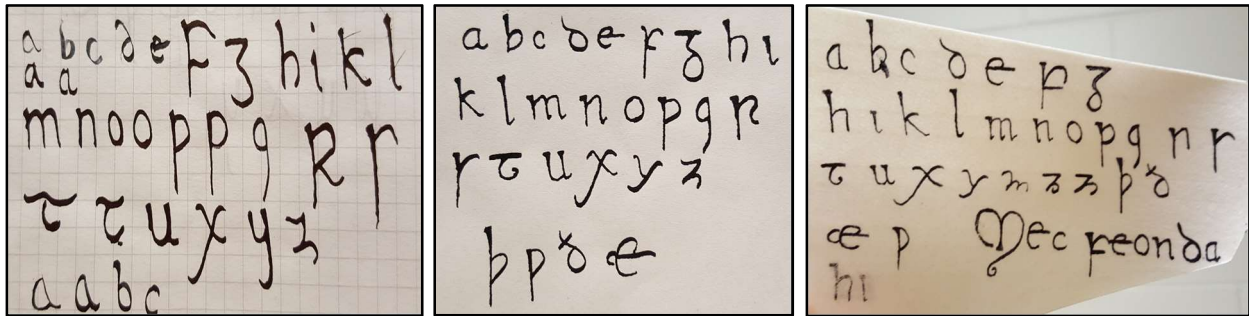 a b c ꝺ e ꝼ ᵹ h i k l
a a
m n o o p p q ꞃ ꞅ
ꞇ ꞇ u x y z
a a b c
a b c ꝺ e ꝼ ᵹ h ı
k l m n o p q ꞃ
ꞅ ꞇ u x y z
þ ƿ ð æ
a b c ꝺ e ꝼ ᵹ
h ı k l m n o p q ꞃ ꞅ
ꞇ u x y z z þ ð
æ ƿ Mec ꝼeonꝺa
hı